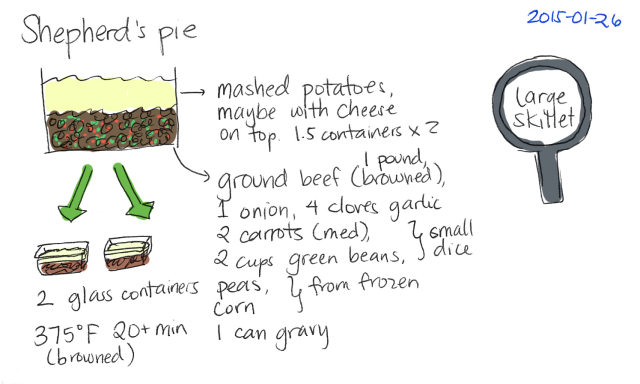 Shepherd's pie
2015-01-26
mashed potatoes,
maybe with cheese
on top. 1.5 containers x 2
large
skillet
1 pound,
ground beef (browned),
1 onion, 4 cloves garlic
2 carrots (med),
2 cups green beans,
small
dice
peas,
corn
from frozen
1 can gravy
2 glass containers
375°F 20+ min
(browned)